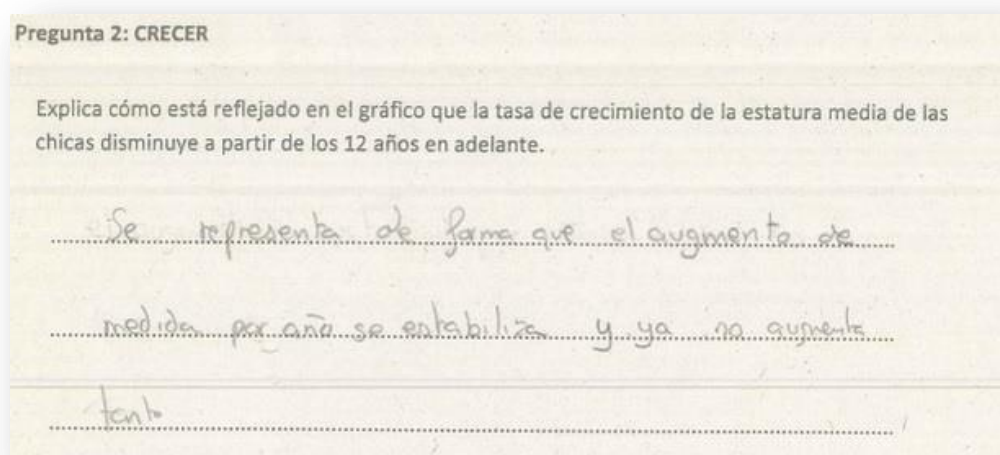 Pregunta 2: CRECER
Explica cómo está reflejado en el gráfico que la tasa de crecimiento de la estatura media de las
chicas disminuye a partir de los 12 años en adelante.
Se representa de forma que el augmento de
medida por año se estabiliza y ya no aumenta
tanto